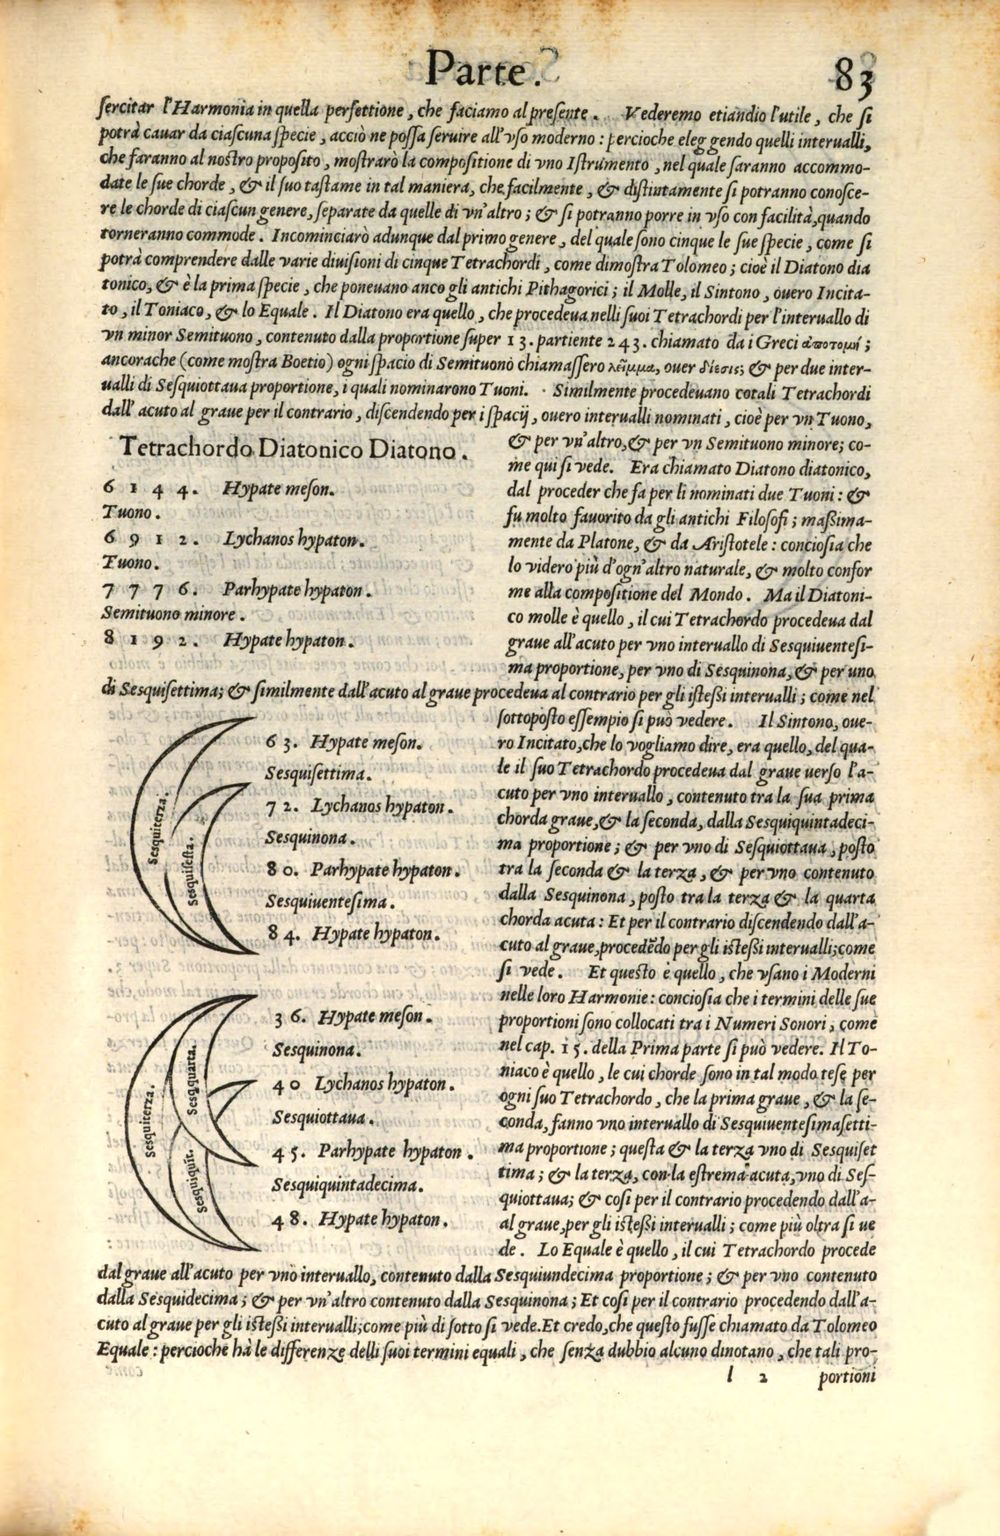 Parte. 83
sercitar l'Harmonia in quella perfettione, che faciamo al presente. Vederemo etiandio l'utile, che si
potrà cauar da ciascuna specie, acciò ne possa seruire all'vso moderno: percioche eleggendo quelli interualli,
che faranno al nostro proposito, mostrarò la compositione di vno Istrumento, nel quale saranno accommo-
date le sue chorde, & il suo tastame in tal maniera, che facilmente, & distintamente si potranno conosce-
re le chorde di ciascun genere, separate da quelle di vn'altro; & si potranno porre in vso con facilità, quando
torneranno commode. Incominciarò adunque dal primo genere, del quale sono cinque le sue specie, come si
potrà comprendere dalle varie diuisioni di cinque Tetrachordi, come dimostra Tolomeo; cioè il Diatono dia
tonico, & è la prima specie, che poneuano anco gli antichi Pithagorici; il Molle, il Sintono, ouero Incita-
to, il Toniaco, & lo Equale. Il Diatono era quello, che procedeua nelli suoi Tetrachordi per l'interuallo di
vn minor Semituono, contenuto dalla proportione super 13. partiente 243. chiamato da i Greci ἀποτομή;
ancorache (come mostra Boetio) ogni spacio di Semituono chiamassero λεῖμμα, ouer δίεσις; & per due inter-
ualli di Sesquiottaua proportione, i quali nominarono Tuoni. Similmente procedeuano cotali Tetrachordi
dall'acuto al graue per il contrario, discendendo per i spacij, ouero interualli nominati, cioè per vn Tuono,
Tetrachordo Diatonico Diatono.
6 1 4 4. Hypate meson.
Tuono.
6 9 1 2. Lychanos hypaton.
Tuono.
7 7 7 6. Parhypate hypaton.
Semituono minore.
8 1 9 2. Hypate hypaton.
& per vn'altro, & per vn Semituono minore; co-
me qui si vede. Era chiamato Diatono diatonico,
dal proceder che fa per li nominati due Tuoni: &
fu molto fauorito da gli antichi Filosofi; massima-
mente da Platone, & da Aristotele: conciosia che
lo videro più d'ogn'altro naturale, & molto confor
me alla compositione del Mondo. Ma il Diatoni-
co molle è quello, il cui Tetrachordo procedeua dal
graue all'acuto per vno interuallo di Sesquiuentesi-
ma proportione, per vno di Sesquinona, & per uno
di Sesquisettima; & similmente dall'acuto al graue procedeua al contrario per gli istessi interualli; come nel
Sesquiterza.
Sesquisesta.
6 3. Hypate meson.
Sesquisettima.
7 2. Lychanos hypaton.
Sesquinona.
8 0. Parhypate hypaton.
Sesquiuentesima.
8 4. Hypate hypaton.
Sesquiterza.
Sesququarta.
Sesquiquit.
3 6. Hypate meson.
Sesquinona.
4 0 Lychanos hypaton.
Sesquiottaua.
4 5. Parhypate hypaton.
Sesquiquintadecima.
4 8. Hypate hypaton.
sottoposto essempio si può vedere. Il Sintono, oue-
ro Incitato, che lo vogliamo dire, era quello, del qua-
le il suo Tetrachordo procedeua dal graue uerso l'a-
cuto per vno interuallo, contenuto tra la sua prima
chorda graue, & la seconda, dalla Sesquiquintadeci-
ma proportione; & per vno di Sesquiottaua, posto
tra la seconda & la terza, & per vno contenuto
dalla Sesquinona, posto tra la terza & la quarta
chorda acuta: Et per il contrario discendendo dall'a-
cuto al graue, procedẽdo per gli istessi interualli; come
si vede. Et questo è quello, che vsano i Moderni
nelle loro Harmonie: conciosia che i termini delle sue
proportioni sono collocati tra i Numeri Sonori, come
nel cap. 15. della Prima parte si può vedere. Il To-
niaco è quello, le cui chorde sono in tal modo tese per
ogni suo Tetrachordo, che la prima graue, & la se-
conda, fanno vno interuallo di Sesquiuentesimasetti-
ma proportione; questa & la terza vno di Sesquiset
tima; & la terza, con la estrema acuta, vno di Ses-
quiottaua; & cosi per il contrario procedendo dall'a-
al graue, per gli istessi interualli; come più oltra si ue
de. Lo Equale è quello, il cui Tetrachordo procede
dal graue all'acuto per vno interuallo, contenuto dalla Sesquiundecima proportione; & per vno contenuto
dalla Sesquidecima; & per vn'altro contenuto dalla Sesquinona; Et cosi per il contrario procedendo dall'a-
cuto al graue per gli istessi interualli; come più di sotto si vede. Et credo, che questo fusse chiamato da Tolomeo
Equale: percioche hà le differenze delli suoi termini equali, che senza dubbio alcuno dinotano, che tali pro-
l 2 portioni